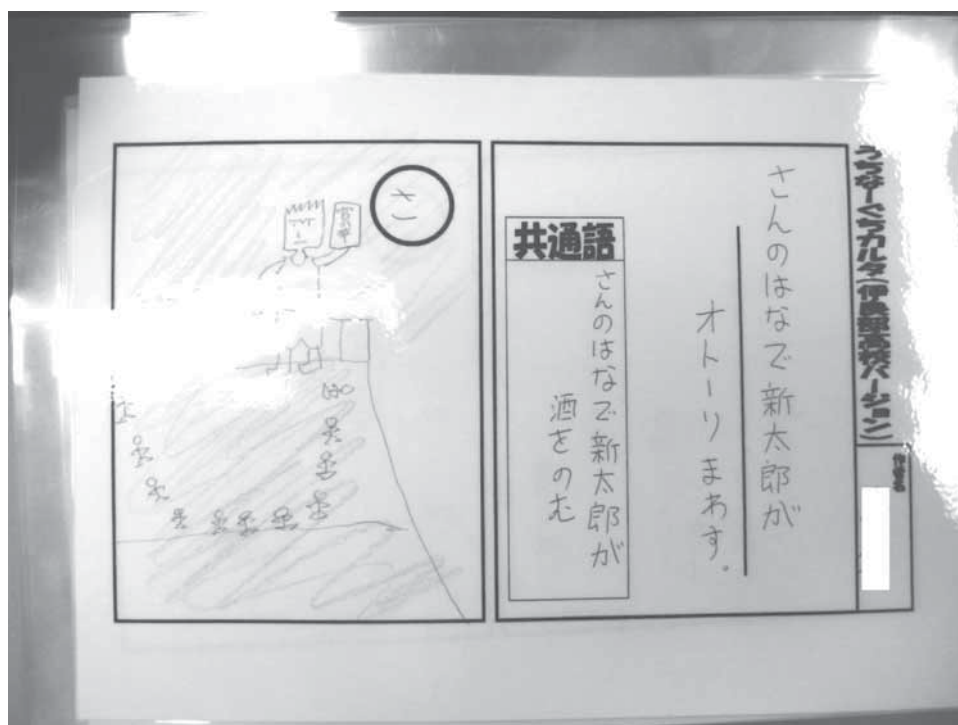 うちなーぐちカルタ(伊良部高校バージョン)
作者名
さんのはなで新太郎が
オトーリまわす。
共通語
さんのはなで新太郎が
酒をのむ
さ